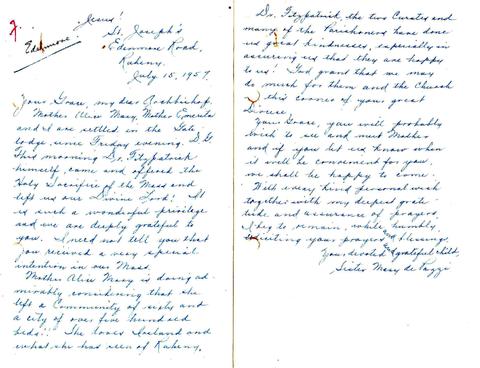 Jesus!
Edenmore.
St. Joseph's
Edenmore Road,
Raheny.
July 15, 1957.
Your Grace, my dear Archbishop,
Mother Alice Mary, Mother
and I are settled in the Gate
lodge, since Friday evening. D.G.
This morning Dr. Fitzpatrick
himself, came and offered the
Holy Sacrifice of the Mass and
left us Our Divine Lord! It
is such a wonderful privilege
and we are deeply grateful to
you. I need not tell you that
you received a very special
intention in our Mass.
Mother Alice Mary is doing ad-
mirably considering that she
left a Community of sixty and
a city of over five hundred
beds!! She loves Ireland and
what she has seen of Raheny.
Dr. Fitzpatrick, the two Curates and
many of the Parishioners have done
us great kindnesses, especially in
assuring us that they are happy
to us! God grant that we may
do much for them and the Church
in this corner of your great
Diocese.
Your Grace, you will probably
wish to see and meet Mother
and if you let us know when
it will be convenient for you,
we shall be happy to come.
With every kind personal wish
together with my deepest grati-
tude and assurance of prayers,
I beg to remain, while humbly
soliciting your prayers and blessing,
Your devoted and grateful child,
Sister Mary de Pazzi